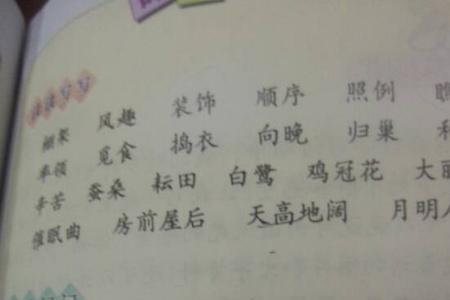 读读写写
棚架 风趣 装饰 顺序 照例
率领 觅食 捣衣 向晚 归巢 和
辛苦 蚕桑 耘田 白鹭 鸡冠花 大丽
催眠曲 房前屋后 天高地阔 月明人